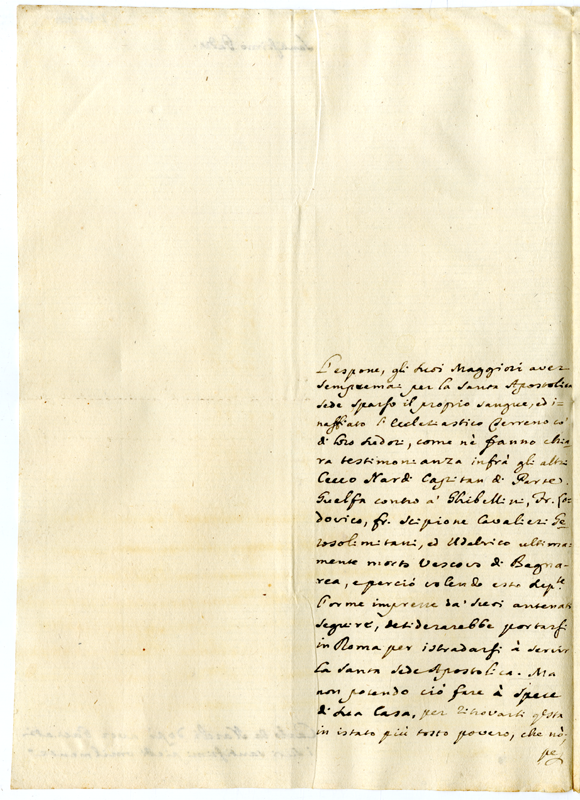 L'espone, gli suoi Maggiori aver
sempremai per la Santa Apostolica
Sede sparso il proprio sangue, ed i-
naffiato l'Ecclesiastico Terreno co'
di loro sudori, come nè fanno chia-
ra testimonianza infrà gli altri
Cecco Nardi Capitan di Parte
Guelfa contro a' Ghibellini, Fr. Lo-
dovico, fr. Scipione Cavalieri Ge-
rosolimitani, ed Uldrico ultima-
mente morto Vescovo di Bagna-
rea, e perciò volendo esto
l'orme impresse da' suoi antenati
seguire, desiderarebbe portarsi
in Roma per istradarsi à servir
la Santa Sede Apostolica. Ma
non potendo ciò fare à spese
di sua Casa, per ritrovarsi qsta
in istato più tosto povero, che nò,
pe